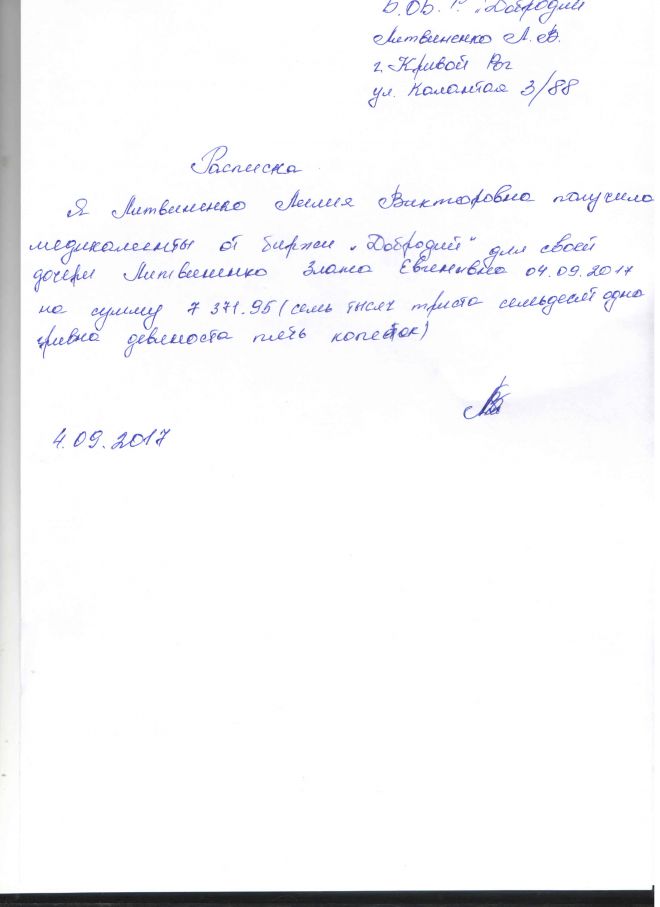 Б.ОБ. Г. "Добродий
Литвиненко Л.В.
г. Кривой Рог
ул. Калантая 3/88
Расписка
Я Литвиненко Лилия Викторовна получила
медикаменты от биржи "Добродий" для своей
дочери Литвиненко Злата Евгенивна 04.09.2017
на сумму 7 371.95 (семь тысяч триста семьдесят одна
гривна девяноста пять копеек)
4.09.2017